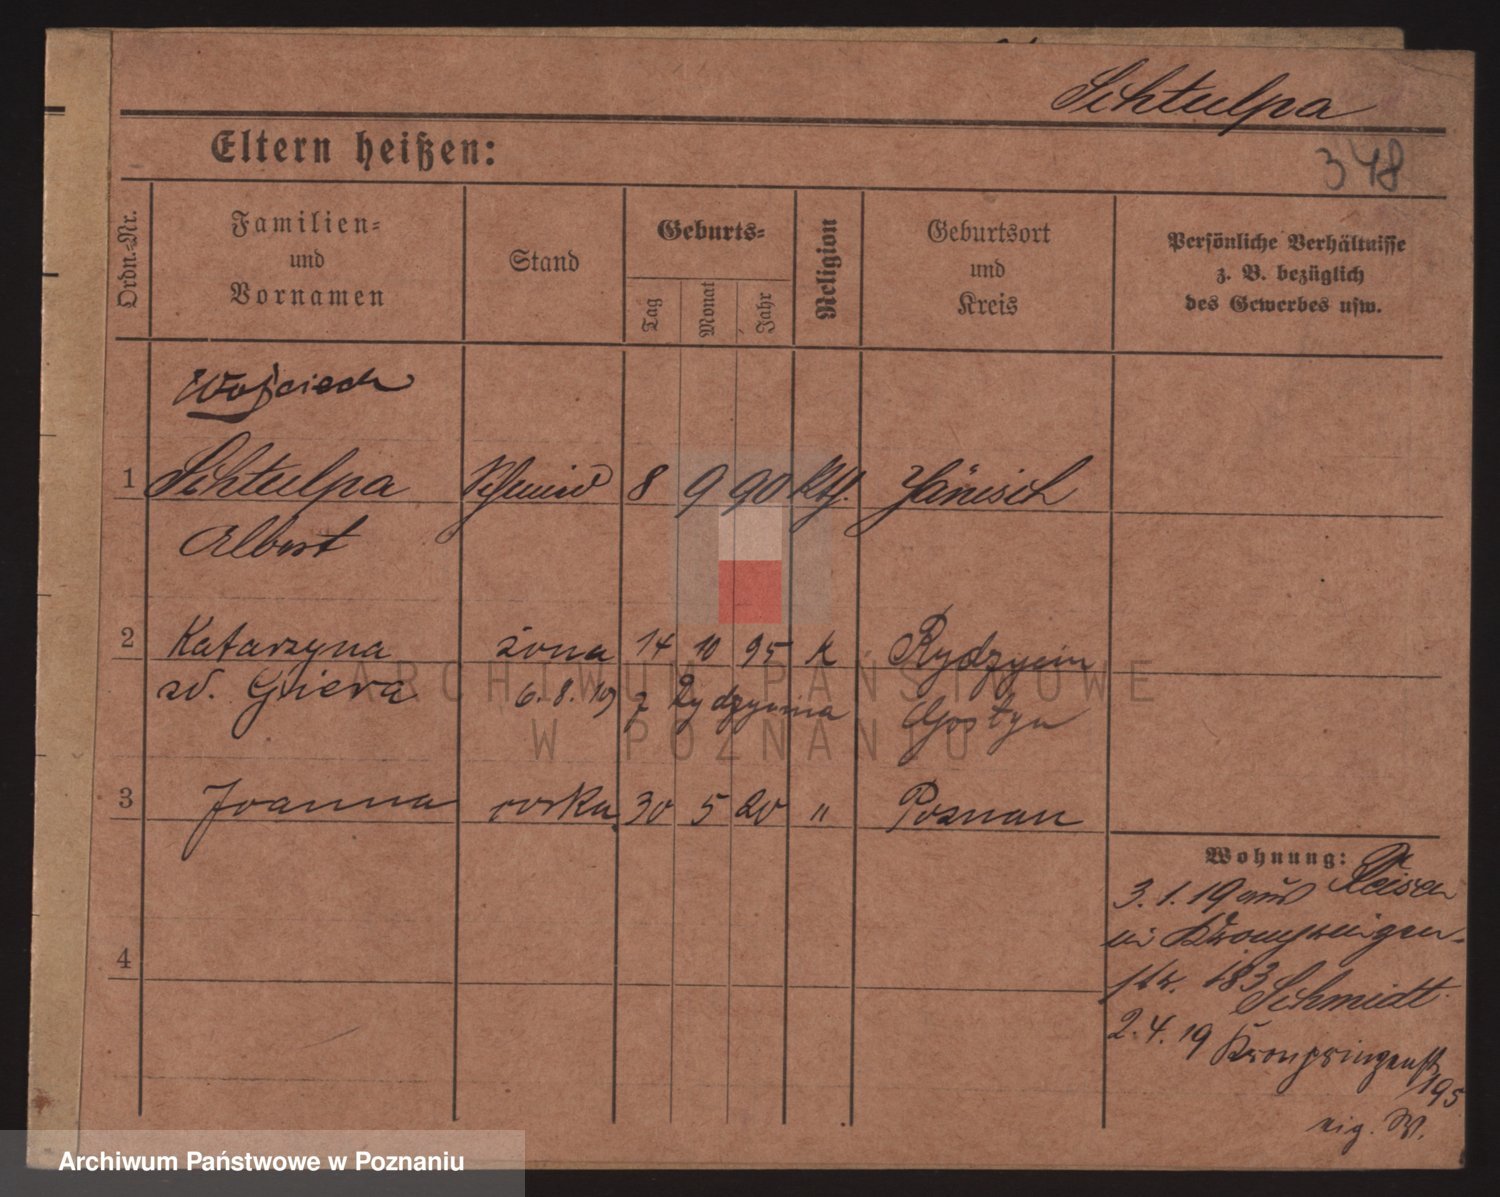 Schtulpa
348
Eltern heißen:
Ordn.-Nr.
Familien-
und
Vornamen
Stand
Geburts-
Tag
Monat
Jahr
Religion
Geburtsort
und
Kreis
Persönliche Verhältnisse
z. B. bezüglich
des Gewerbes usw.
Wojciech
1 Schtulpa Schmied 8 9 90 kth. Jänisch
Albert
2 Katarzyna żona 14 10 95 k Rydzyna
6. 8. 19 z Rydzynia Gostyn
3 Joanna corka 30 5 20 " Poznan
4
Wohnung:
3. 1. 19 aus Reisen
Kronprinzen-
str. 183
Schmidt
2. 4. 19 Kronprinzenstr
195
eig. W.
ARCHIWUM PAŃSTWOWE
W POZNANIU
Archiwum Państwowe w Poznaniu